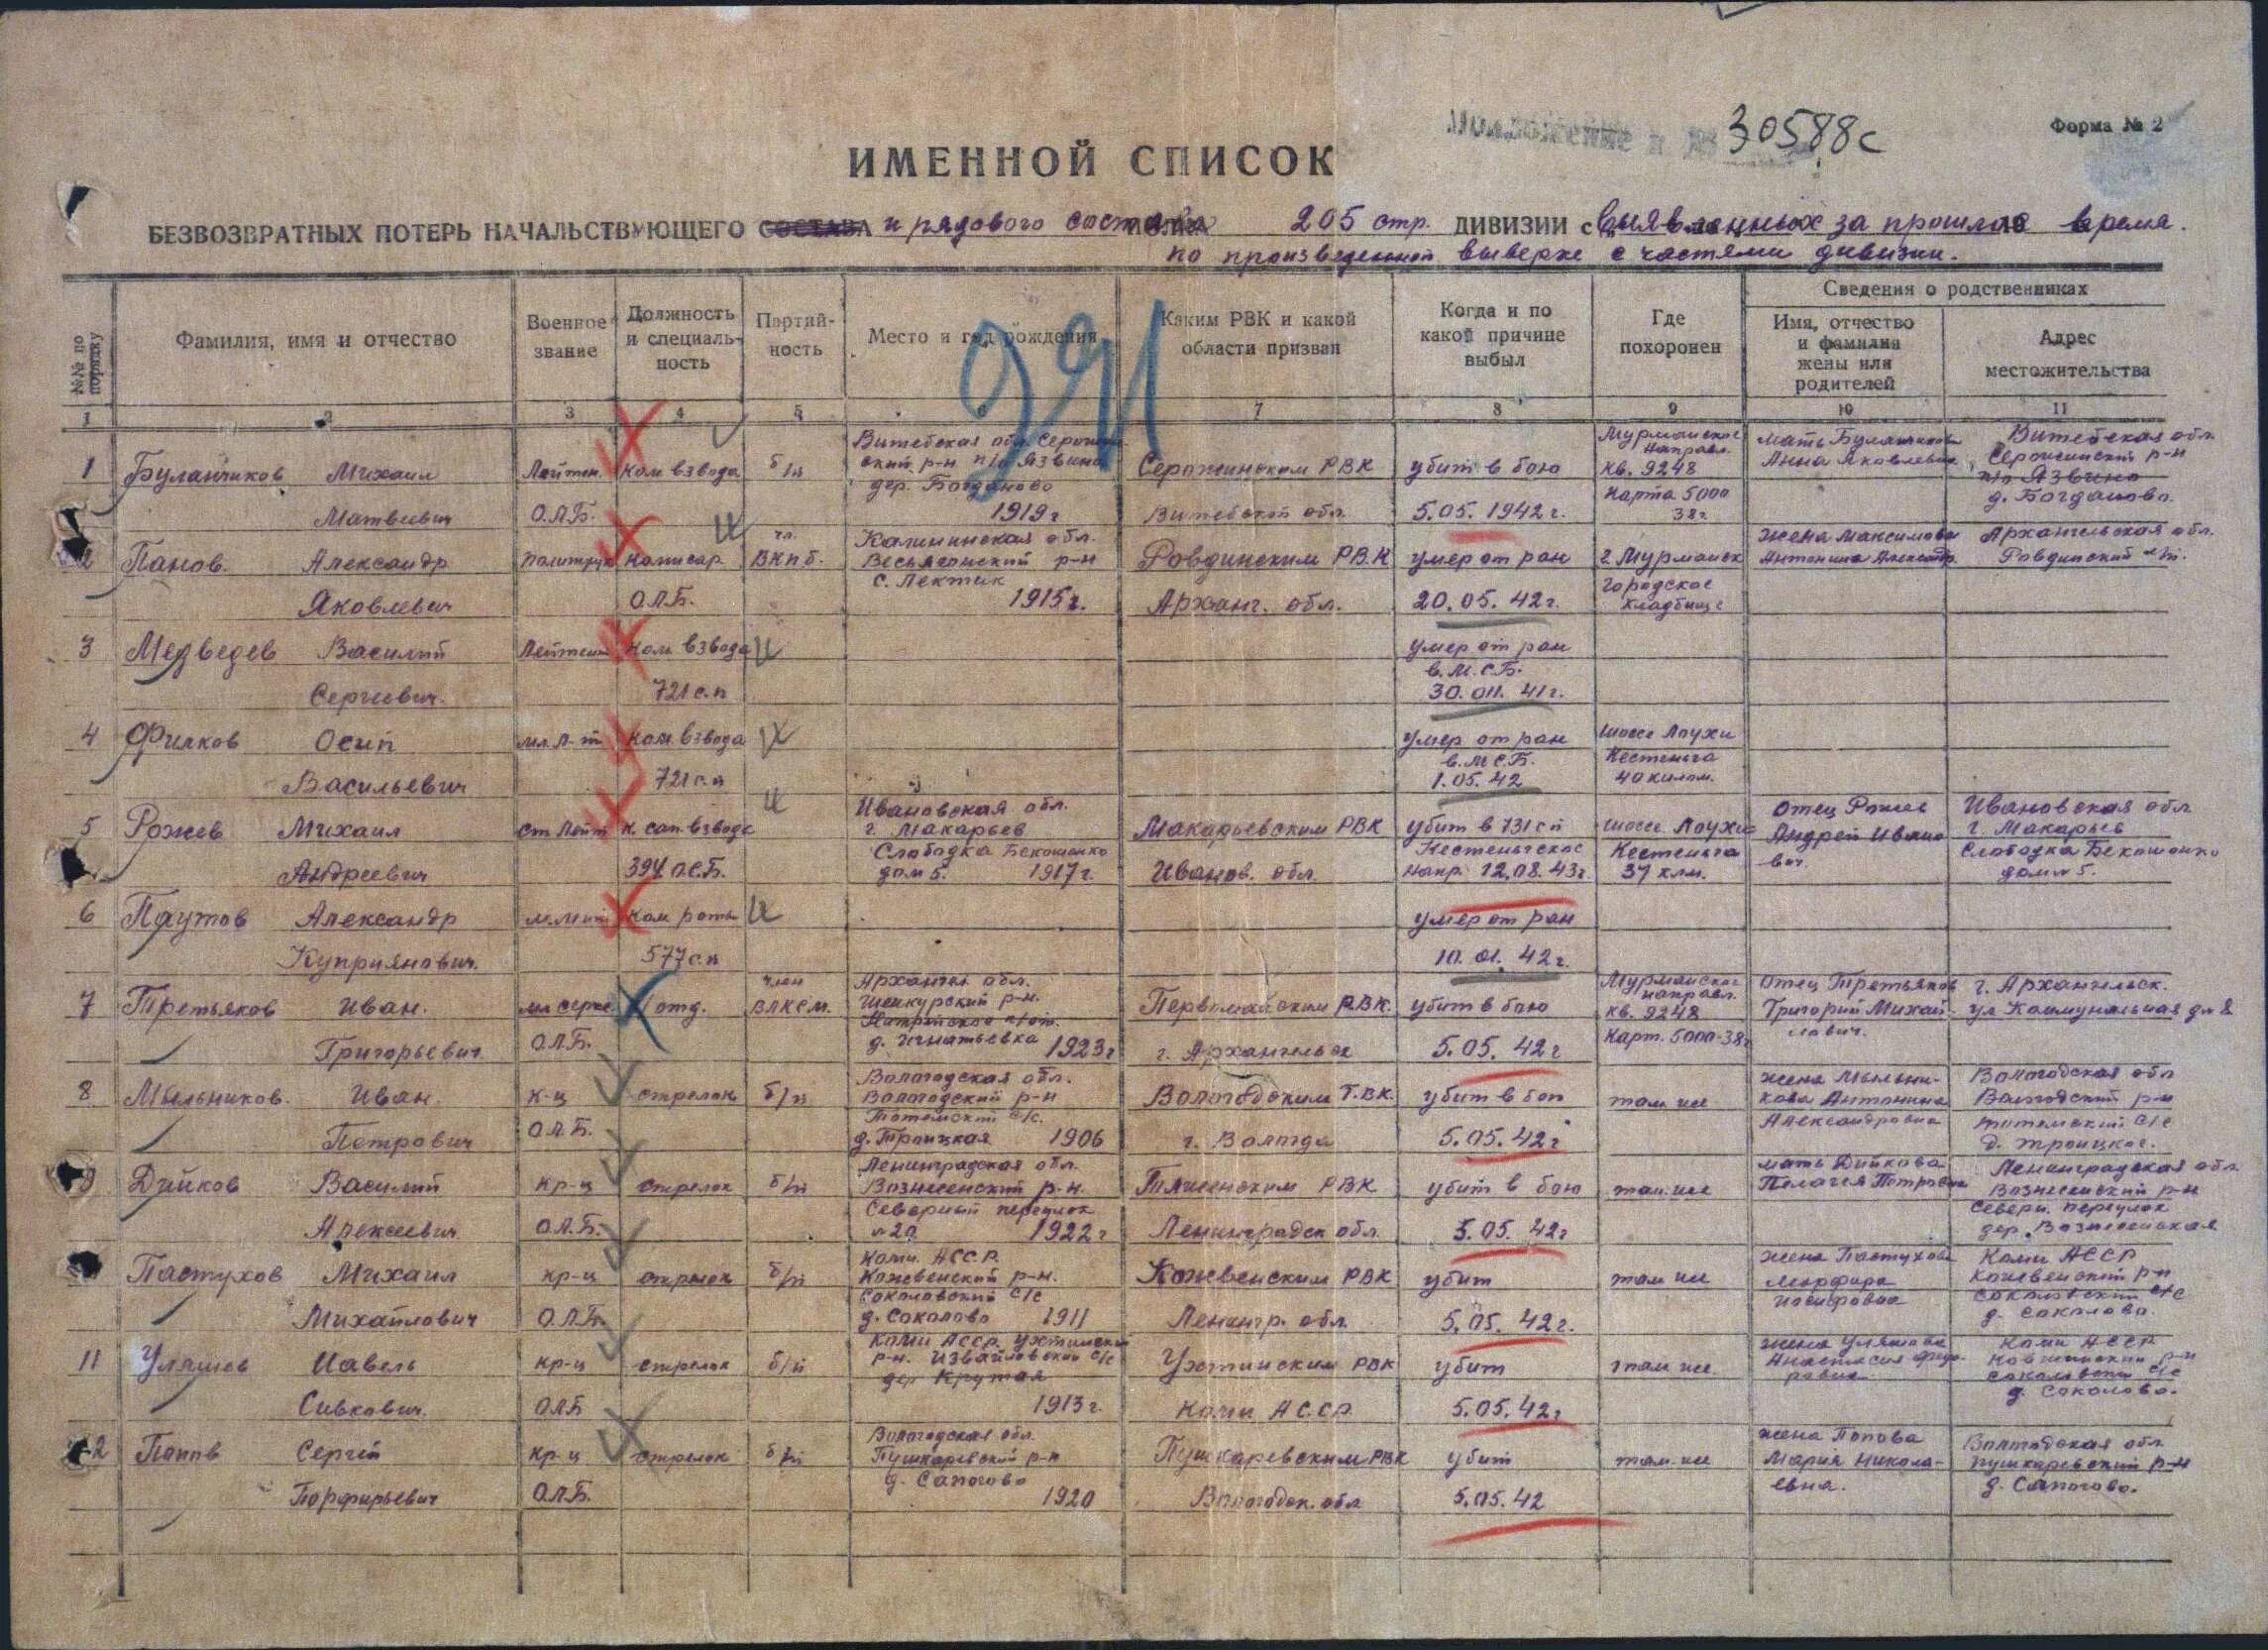 30588с
Форма № 2
ИМЕННОЙ СПИСОК
БЕЗВОЗВРАТНЫХ ПОТЕРЬ НАЧАЛЬСТВУЮЩЕГО СОСТАВА и рядового состава 205 стр. ДИВИЗИИ с выявленных за прошлое время.
по произведенной выверке с частями дивизии.
№№ по порядку
Фамилия, имя и отчество
Военное звание
Должность и специальность
Партийность
Место и год рождения
Каким РВК и какой области призван
Когда и по какой причине выбыл
Где похоронен
Сведения о родственниках
Имя, отчество и фамилия жены или родителей
Адрес местожительства
1 2 3 4 5 6 7 8 9 10 11
1 Буланчиков Михаил Матвеевич
Лейтен. О.Л.Б.
Ком взвода
б/п
Витебская обл.
дер. Богданово
1919 г
Серожинским РВК
Витебской обл.
убит в бою
5.05. 1942 г.
Мурманское направл.
кв. 9248
Карта 5000
38 г.
мать
Анна Яковлевна
Витебская обл.
Серожинский р-н
п/о Язвино
д. Богданово.
2 Панов. Александр Яковлевич
политрук
Комисар О.Л.Б.
чл. ВКПб.
Калининская обл.
Весьегонский р-н
1915 г.
Ровдинским РВК
Арханг. обл.
умер от ран
20.05. 42 г.
г. Мурманск
городское
кладбище
жена Максимова
Антонина Александр.
Архангельская обл.
Ровдинский
3 Медведев Василий Сергеевич.
Лейтен
Ком взвода
721 с.п
умер от ран
в М.С.Б.
30. 41 г.
4 Филков Осип Васильевич
мл. л-т
Ком. взвода
721 с.п
умер от ран
в. М С.Б.
1.05. 42
шоссе Лоухи
Кестеньга
40 килом.
5 Рожев Михаил Андреевич
ст Лейт
к. сап. взвода
394 О.С.Б.
Ивановская обл.
г. Макарьев
Слободка
дом 5. 1917 г.
Макарьевским РВК
Иванов. обл.
убит в 731 сп
Кестеньгское
напр. 12.08. 43 г.
шоссе Лоухи
Кестеньга
37 клм.
отец Рожев
Андрей Иванович.
Ивановская обл
г Макарьев
Слободка
дом 5.
6 Паутов Александр Куприянович.
Ком роты
577 с.п
умер от ран
10. 01. 42 г.
7 Третьяков Иван. Григорьевич
мл серж. О.Л.Б.
к/отд.
член ВЛКСМ.
Архангель обл.
Шенкурский р-н.
д. Игнатьевка
1923 г
Первомайским РВК.
г. Архангельск
убит в бою
5.05. 42 г
Мурманское
направл.
кв. 9248
Карт. 5000-38 г
отец Третьяков
Григорий Михайлович.
г. Архангельск.
ул Коммунальная д 8
8 Мыльников. Иван. Петрович
к-ц О.Л.Б.
стрелок
б/п
Вологодская обл.
Вологодский р-н
Тотемский с/с.
д. Троицкая 1906
Вологодским Г.ВК.
г. Вологда
убит в бою
5.05. 42 г
там же
жена Мыльникова Антонина
Александровна
Вологодская обл
Вологодский р-н
тотемский с/с
д. троицкое.
9 Дийков Василий Алексеевич
кр-ц О.Л.Б.
стрелок
б/п
Ленинградская обл.
Вознесенский р-н.
Северный переулок
№ 20 1922 г
РВК
Ленинградск обл
убит в бою
5.05. 42 г
там же
мать Дийкова
Пелагея Петровна
Ленинградская обл
Вознесенский р-н
Северн. переулок
дер. Вознесенская
Пастухов Михаил Михайлович
кр-ц О.Л.Б.
стрелок
б/п
Коми. АССР.
Кожвенский р-н.
Соколовский с/с
д. Соколово 1911
Кожвенским РВК
Ленингр. обл
убит
5.05. 42 г.
там же
жена Пастухова
Иосифовна
Коми АССР
Кожвенский р-н
Соколовский с/с
д. Соколово.
11 Уляшев Павель Сивкович.
кр-ц О.Л.Б
стрелок
б/п
Коми АССР. Ухтинский
р-н. с/с
дер Крутая
1913 г.
Ухтинским РВК
Коми АССР
убит
5.05. 42 г
там же.
жена Уляшева
Анастасия
Коми АССР
Соколовский с/с
д. Соколово.
12 Попов Сергей Порфирьевич
кр-ц О.Л.Б.
стрелок
б/п
Вологодская обл.
Пушкаревский р-н
д. Сапогово
1920
Пушкаревским РВК
Вологодск. обл
убит
5.05. 42
там же
жена Попова
Мария Николаевна.
Вологодская обл
пушкаревский р-н
д. Сапогово.